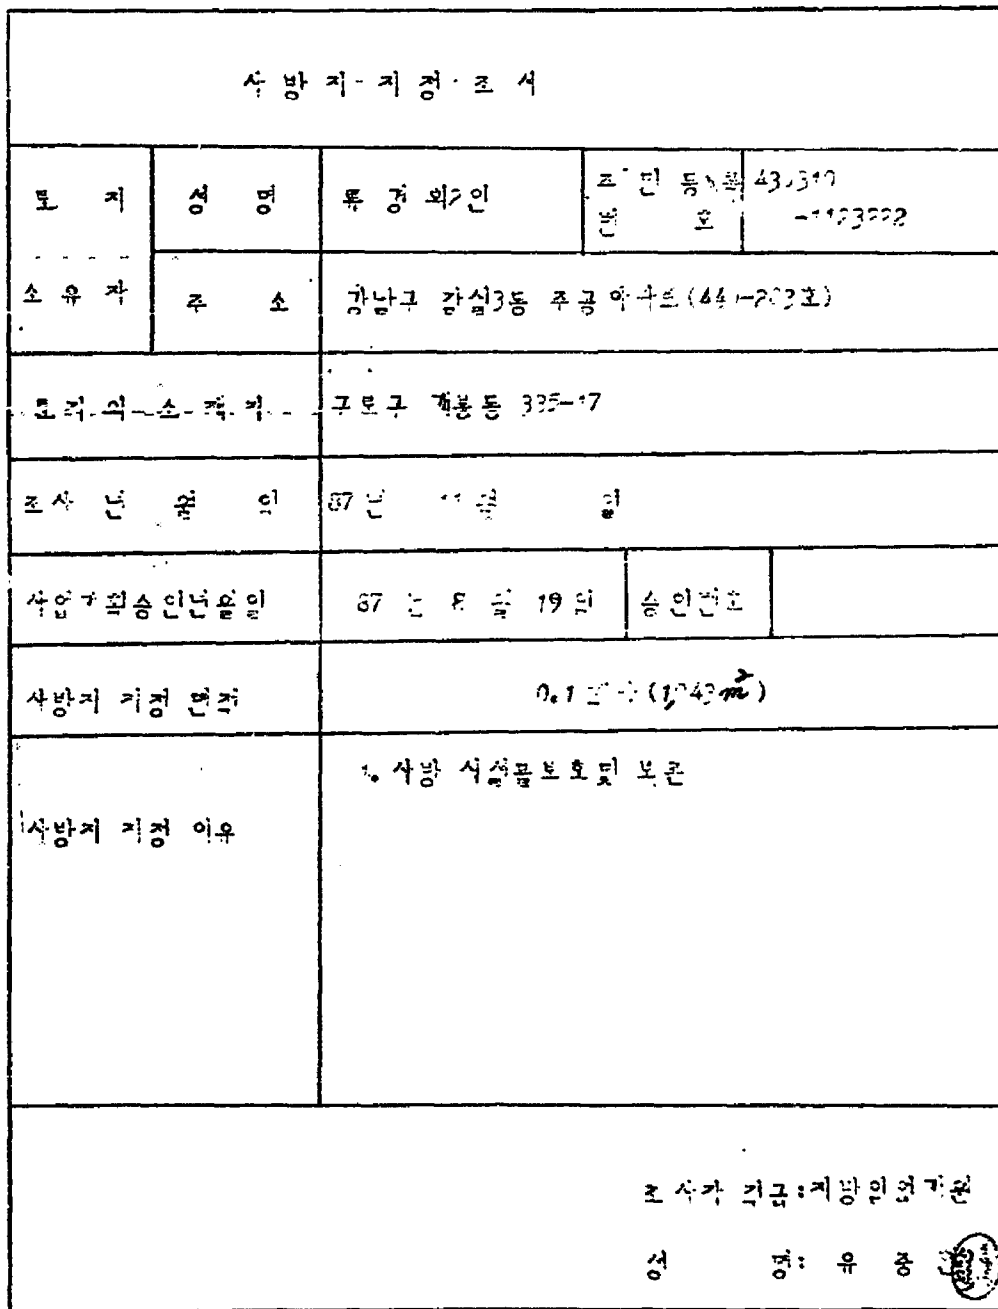 사방지 지정 조서
토지 소유자
성명
류경 외2인
번호
주소
강남구 잠실3동 주공아파트
토지의 소재지
구로구 개봉동 335-17
조사 년 월 일
87년 11월 일
사업계획승인년월일
87년 8월 19일
승인번호
사방지 지정 면적
0.1 m²
사방지 지정 이유
1. 사방 시설물보호및 보존
조사자 직급:지방임업기원
성명: 유중